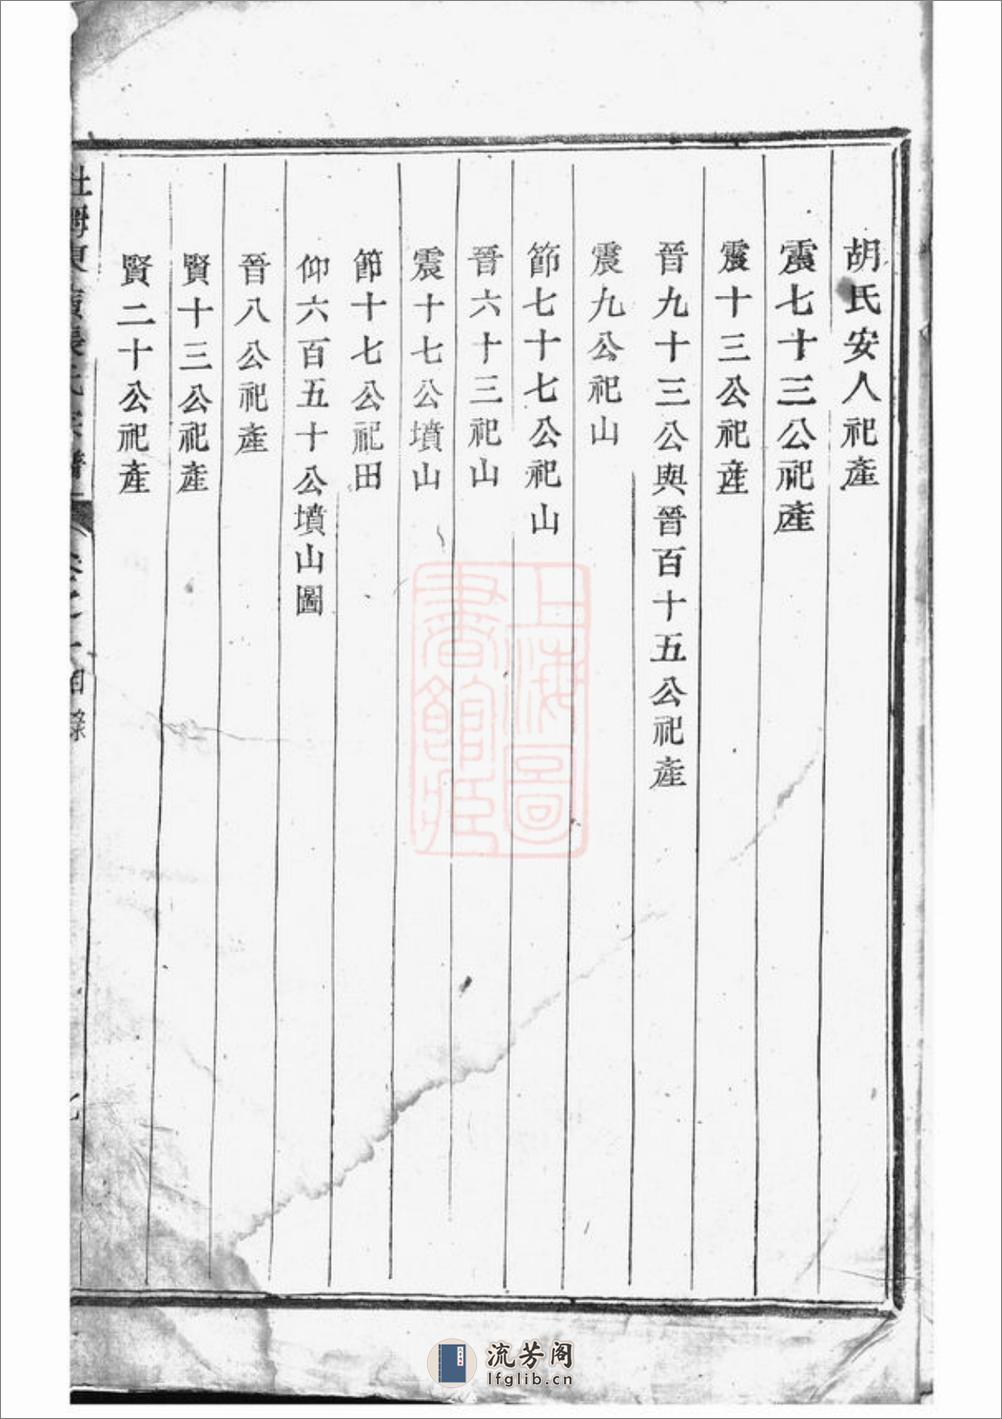 胡氏安人祀產
震七十三公祀產
震十三公祀產
晉九十三公與晉百十五公祀產
震九公祀山
節七十七公祀山
晉六十三祀山
震十七公墳山
節十七公祀田
仰六百五十公墳山圖
晉八公祀產
賢十三公祀產
賢二十公祀產
目錄
上海圖書館藏
流芳阁
lfglib.cn